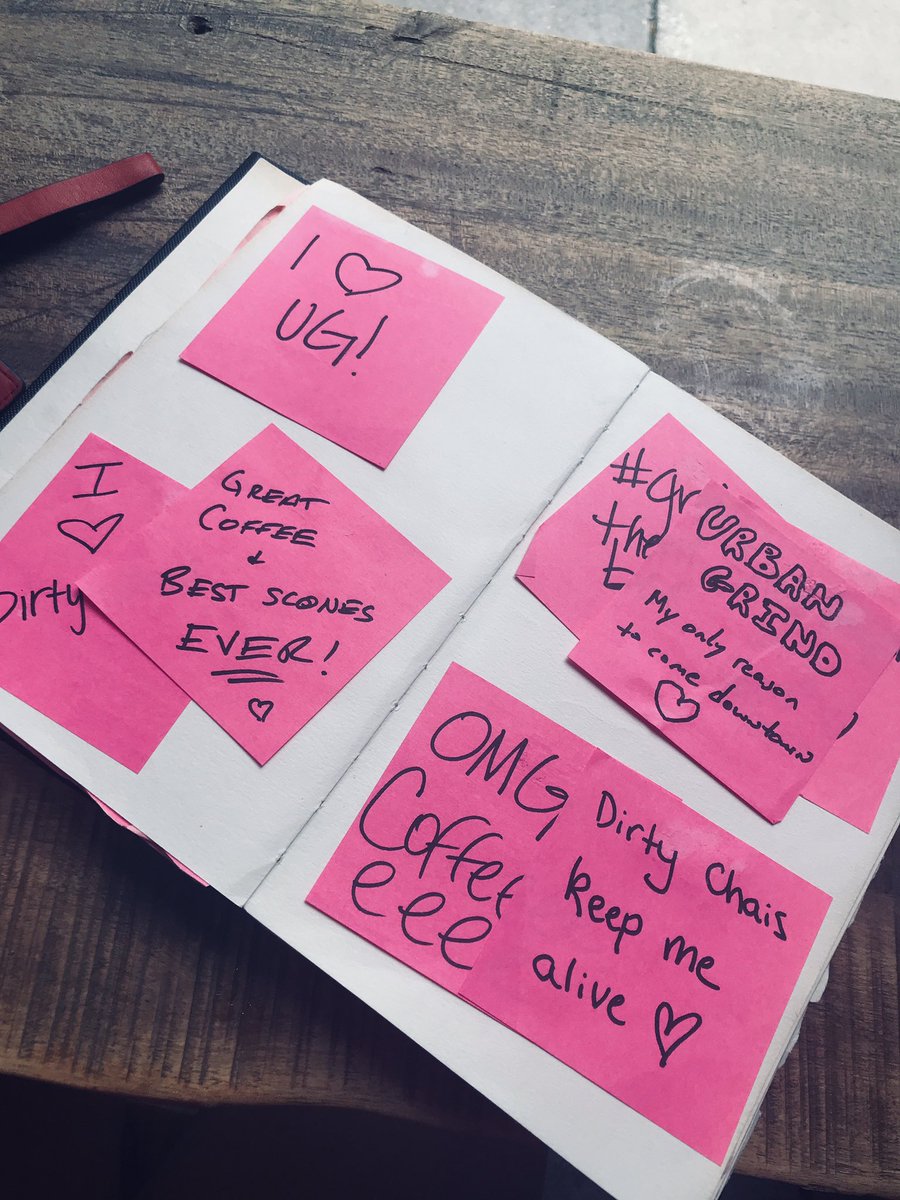 I ♡
UG!
I
♡
Dirty
GREAT
COFFEE
+
BEST SCONES
EVER!
♡
#gr
the
URBAN
GRIND
My only reason
to come downtown
♡
OMG
Coffee
eeee
Dirty Chais
keep me
alive ♡